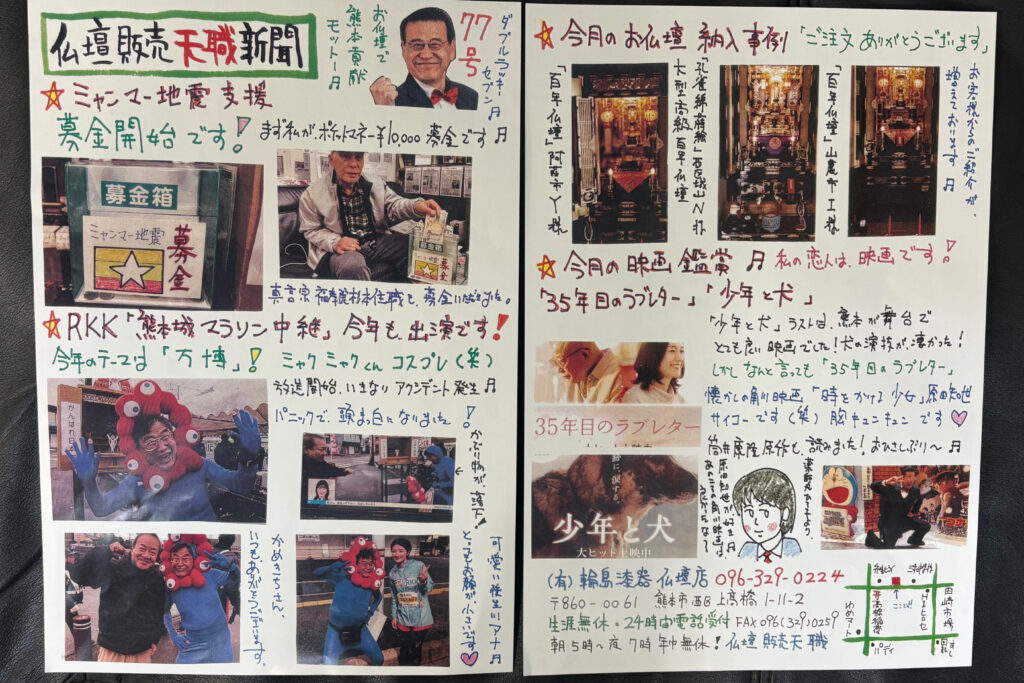 仏壇販売天職新聞
お仏壇で
熊本貢献
モットー♬
77号
ダブルラッキー
セブン♬
☆ミャンマー地震支援
募金開始です!
まず私が、ポケットマネー¥10,000 募金です♬
募金箱
ミャンマー地震
募金
募金箱
ミャンマー地震
募金
☆RKK「熊本城マラソン中継」今年も、出演です!
今年のテーマは「万博」! ミャクミャクくん コスプレ(笑)
放送開始、いきなり アクシデント発生♬
パニックで、頭ま白になりました!
かぶり物が、落下!
がんばれ日
かめきちさん、
いつもありがとうございます。
可愛い後生川アナ♬
とってもお顔が小さいです♡
☆今月のお仏壇 納入事例「ご注文ありがとうございます」
お客様からのご紹介が、
増えております♬
「百年仏壇」山鹿市I様
「孔雀錦蒔絵」西区城山N様
大型高級百年仏壇
「百年仏壇」阿蘇市Y様
☆今月の映画鑑賞♬ 私の恋人は、映画です!
「35年目のラブレター」「少年と犬」
「少年と犬」ラストは、熊本が舞台で
とても良い映画でした!犬の演技が、凄かった!
しかしなんと言っても「35年目のラブレター」
懐かしの角川映画「時をかける少女」原田知世
サイコーです(笑)胸キュンキュンです♡
筒井康隆原作も、読みました!おひさしぶり〜♬
35年目のラブレター
大ヒット上映中
少年と犬
大ヒット上映中
原田知世が、好き♬
(有)輪島漆器仏壇店 096-329-0224
〒860-0061 熊本市西区上高橋1-11-2
生涯無休・24時間電話受付 FAX096(329)0259
朝5時〜夜7時年中無休!仏壇販売天職
田崎市場
ゆめマート
ここだ!
高橋稲荷